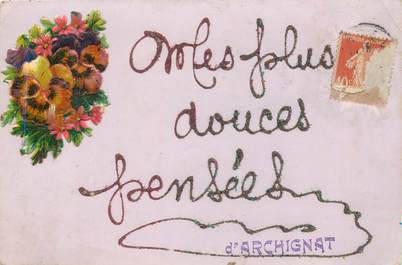 Mes plus
douces
pensées
d'ARCHIGNAT